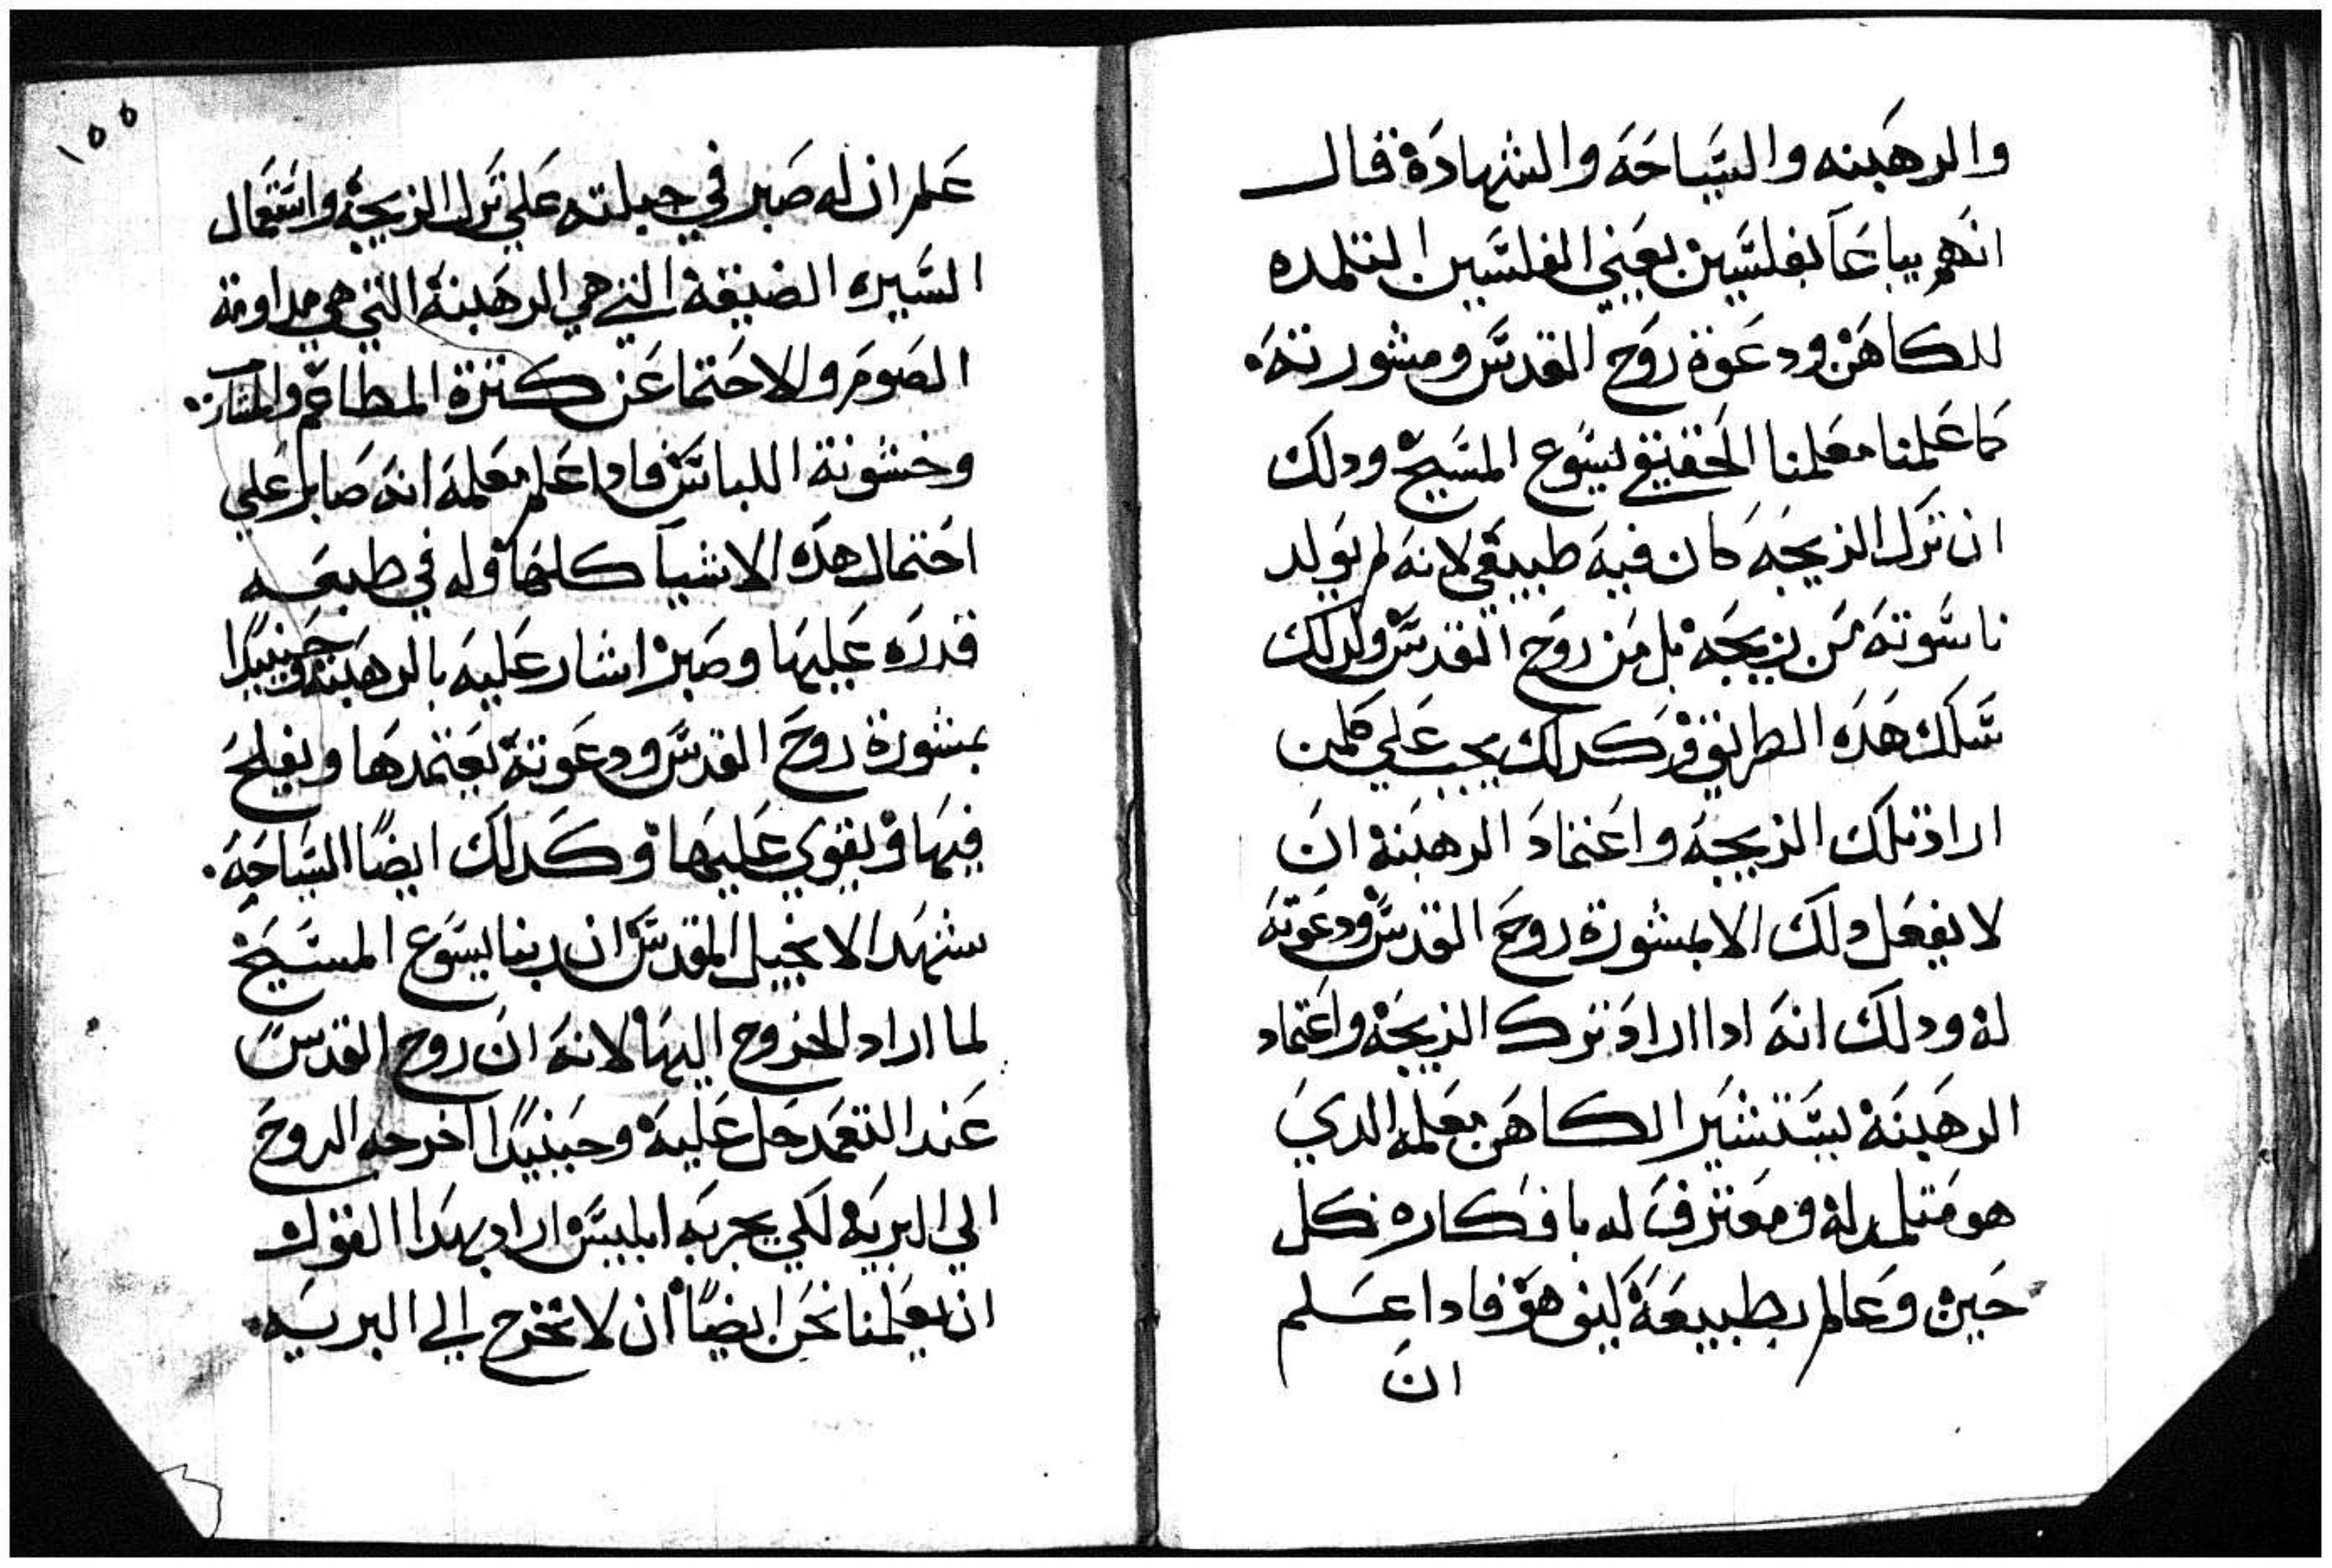 والرهبنه والسياحة والشهادة قال
انهم يباعا بفلسين يعني الفلسين التلمده
للكاهن ودعوة روح القدس ومشورته.
كما علمنا معلمنا الحقيقي يسوع المسيح ودلك
ان ترك الزيجه كان فيه طبيعي لانه لم يولد
ناسوته من زيجه بل من روح القدس ولدلك
سلك هده الطريق وكدلك يجب علي كلمن
اراد ترك الزيجه واعتماد الرهبنه ان
لا يفعل دلك الا بمشورة روح القدس ودعوته
له ودلك انه ادا اراد ترك الزيجه واعتماد
الرهبنه يستشير الكاهن معلمه الدي
هو متلمد له ومعترف له بافكاره كل
حين وعالم بطبيعة كيف هو فادا علم
ان
١٥٥
علم ان له صبر في جبلته علي ترك الزيجة واستعمال
السيره الضيقة التي هي الرهبنة التي هي مداومة
الصوم والاحتما عن كترة المطاعم والمشارب.
وخشونة اللباس فادا علم معلمه انه صابر علي
احتمال هده الاشيا كلها وله في طبعه
قدره عليها وصبر اشار عليه بالرهبنه وحينيدا
بمشورة روح القدس ودعوته يعتمدها ويفلح
فيها ويقوي عليها وكدلك ايضًا السياحة.
شهد الانجيل المقدس ان ربنا يسوع المسيح
لما اراد الخروج اليها لانه ان روح القدس
عند التعمد حل عليه وحينيدا اخرجه الروح
الي البريه لكي يجربه ابليس اراد بهدا القول
ان يعلمنا نحن ايضًا ان لا نخرج الي البريه